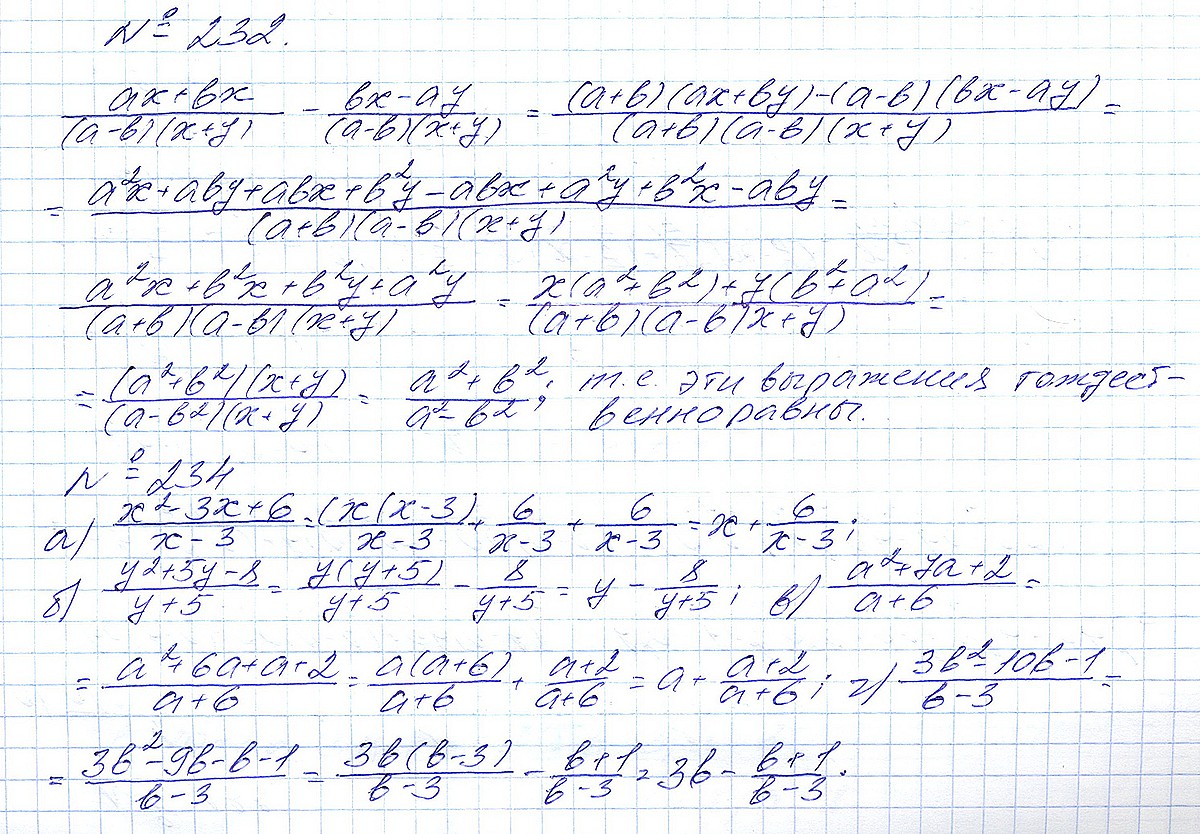 № 232.
(ax+bx)/((a-b)(x+y)) - (bx-ay)/((a-b)(x+y)) = ((a+b)(ax+by)-(a-b)(bx-ay))/((a+b)(a-b)(x+y)) =
= (a²x+aby+abx+b²y-abx+a²y+b²x-aby)/((a+b)(a-b)(x+y)) =
(a²x+b²x+b²y+a²y)/((a+b)(a-b)(x+y)) = (x(a²+b²)+y(b²+a²))/((a+b)(a-b)x+y) =
= ((a²+b²)(x+y))/((a-b²)(x+y)) = (a²+b²)/(a²-b²); т.е. эти выражения тождест-
венно равны.
№ 234
а) (x²-3x+6)/(x-3) = (x(x-3)/(x-3) + 6/(x-3) + 6/(x-3) = x + 6/(x-3);
б) (y²+5y-8)/(y+5) = y(y+5)/(y+5) - 8/(y+5) = y - 8/(y+5); в) (a²+7a+2)/(a+6) =
= (a²+6a+a+2)/(a+6) = a(a+6)/(a+6) + (a+2)/(a+6) = a + (a+2)/(a+6); г) (3b²-10b-1)/(b-3) =
= (3b²-9b-b-1)/(b-3) = 3b(b-3)/(b-3) - (b+1)/(b-3) = 3b - (b+1)/(b-3).